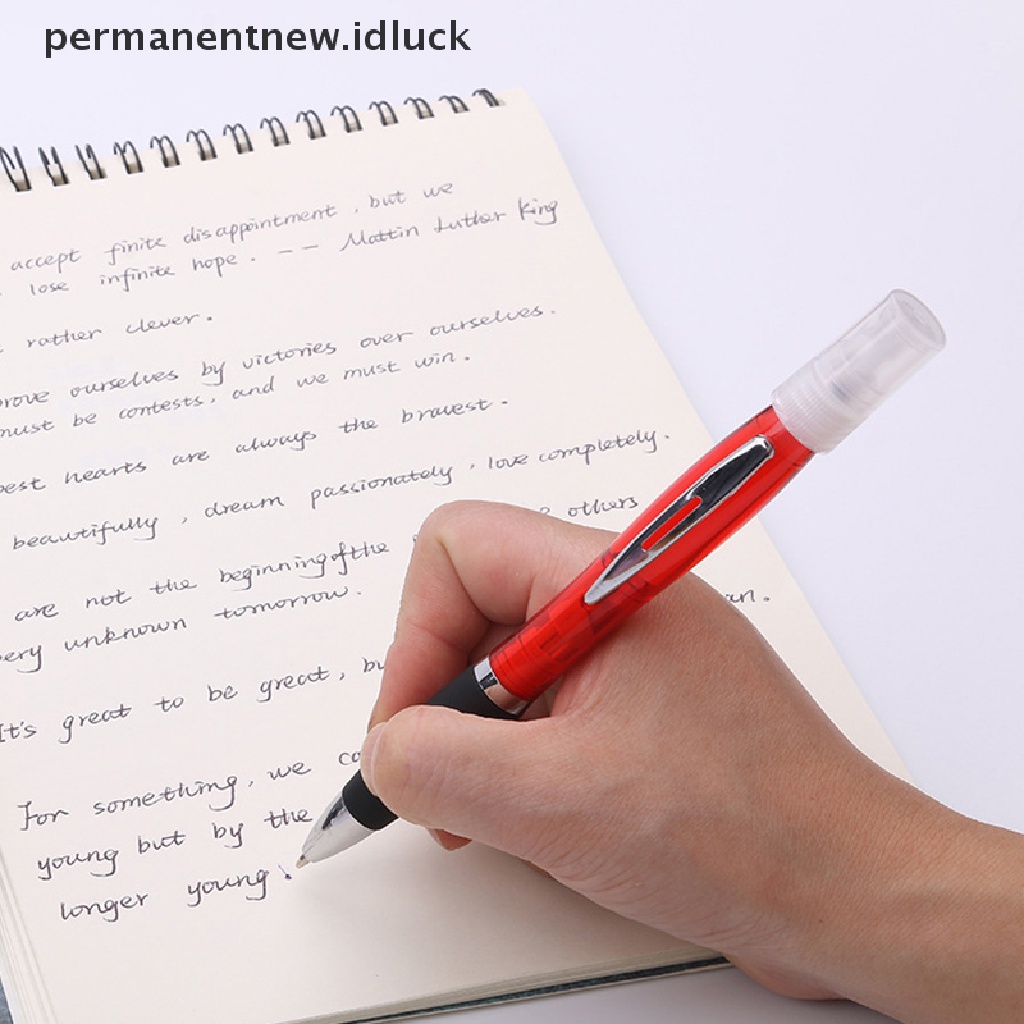 permanentnew.idluck
accept finite disappointment , but we
lose infinite hope . -- Mattin Luther King
rather clever .
prove ourselves by victories over ourselves .
must be contests , and we must win .
hearts are always the bravest .
beautifully , dream passionately , love completely .
are not the beginning of the others
unknown tomorrow .
It's great to be great ,
For something , we
young but by the
longer young